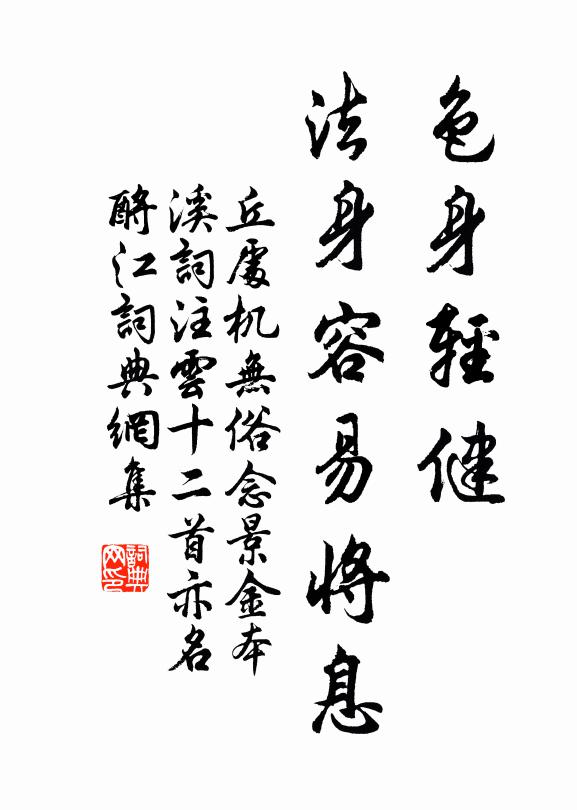 色身輕健
法身容易將息
丘處机無俗念景金本
溪詞注雲十二首亦名
酹江詞典網集
詞典
网印